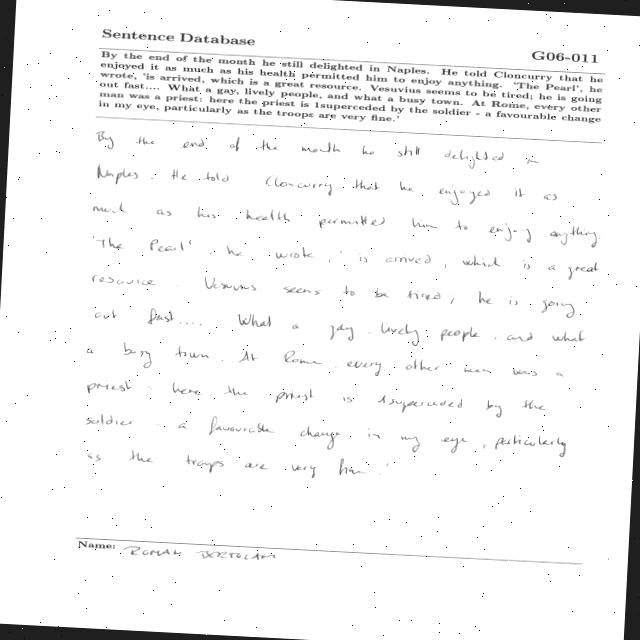 Sentence Database
G06-011
By the end of the month he still delighted in Naples. He told Cloncurry that he
enjoyed it as much as his health permitted him to enjoy anything. 'The Pearl', he
wrote, 'is arrived, which is a great resource. Vesuvius seems to be tired; he is going
out fast.... What a gay, lively people, and what a busy town. At Rome, every other
man was a priest: here the priest is 1superceded by the soldier - a favourable change
in my eye, particularly as the troops are very fine.'
By the end of the month he still delighted in
Naples. He told Cloncurry that he enjoyed it as
much as his health permitted him to enjoy anything.
'The Pearl' he wrote, 'is arrived, which is a great
resource. Vesuvius seems to be tired; he is going
out fast.... What a gay lively people, and what
a busy town. At Rome every other man was a
priest: here the priest is 1superceded by the
soldier - a favourable change in my eye, particularly
as the troops are very fine.'
Name: ROMAN